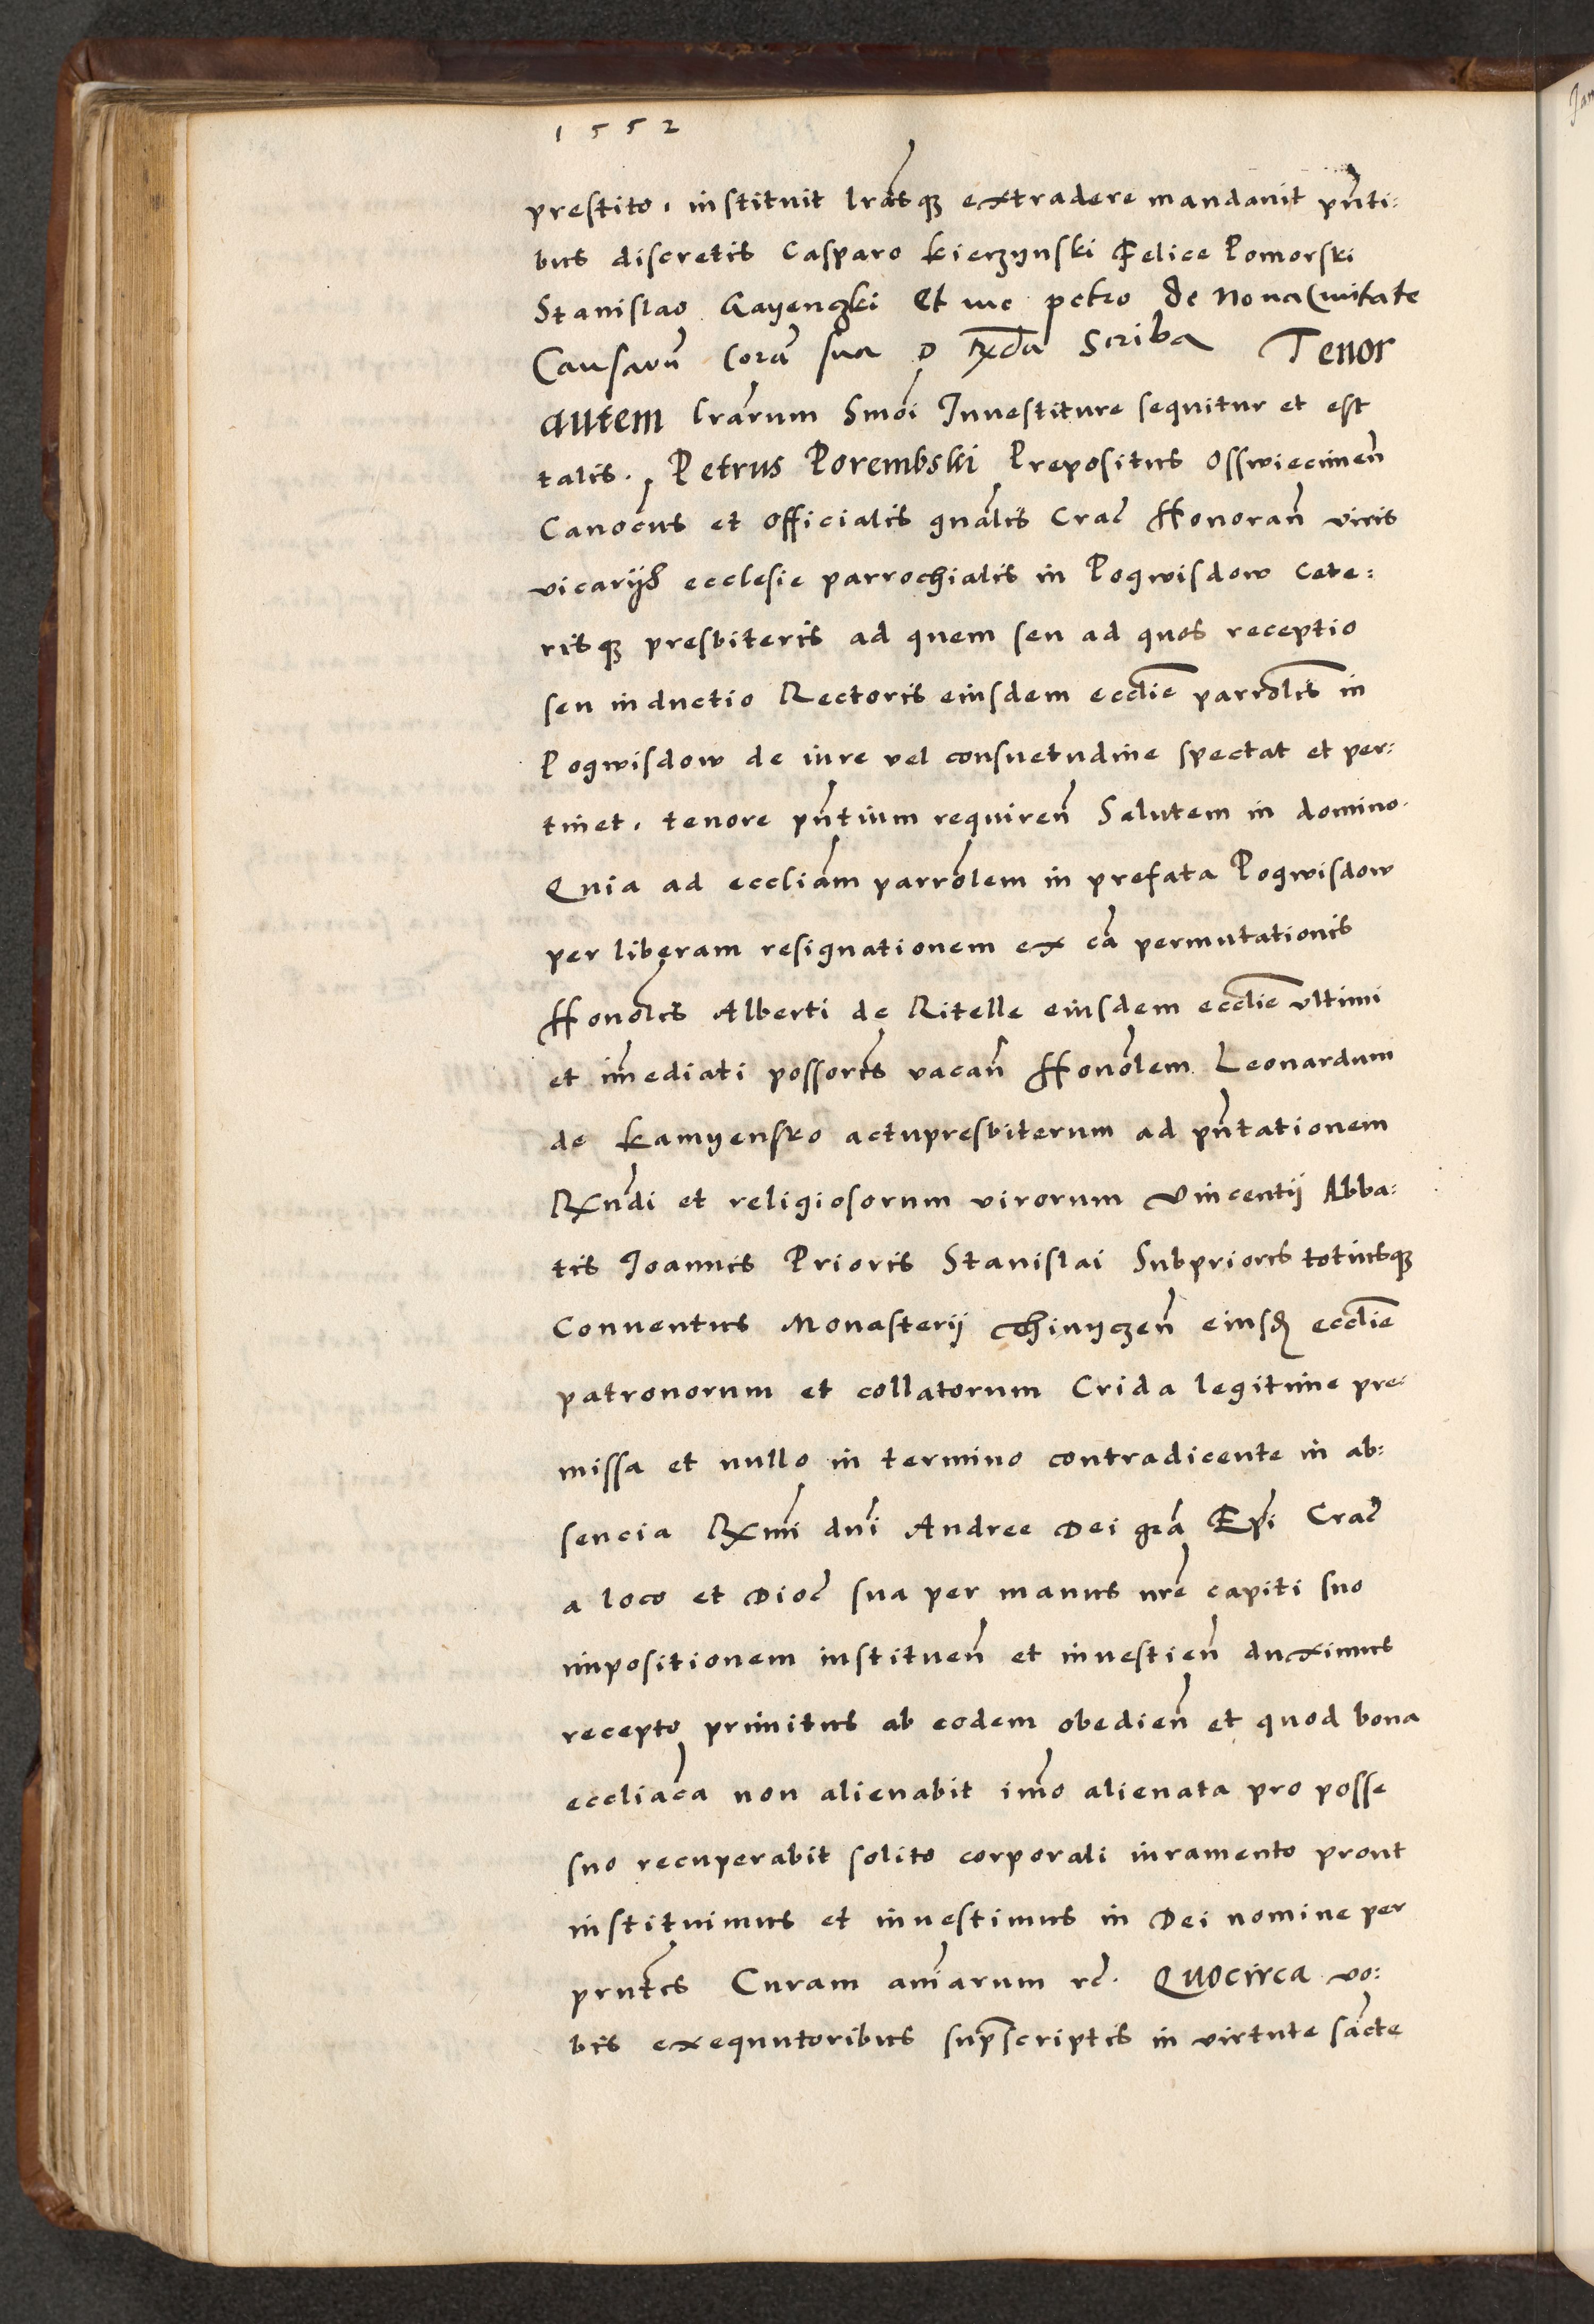 1552
prestito, instituit lrasq3 extradere mandavit pnti:
bus discretis Casparo Kierzynski Felice Pomorski
Stanislao Gayenczki Et me petro de Nova Civitate
Causarum coram sua p Rda Scriba Tenor
autem lrarum Smoi Investiture sequitur et est
talis. Petrus Porembski Prepositus Osswiecimen
Canocus et Officialis gnalis Crac Honoran viris
vicarijs ecclesie parrochialis in Pogwisdow cete:
risq3 presbiteris ad quem seu ad quos receptio
seu inductio Rectoris eiusdem ecclie parrolis in
Pogwisdow de iure vel consuetudine spectat et per:
tinet, tenore pntium requiren Salutem in domino.
Quia ad eccliam parrolem in prefata Pogwisdow
per liberam resignationem ex ca permutationis
Honolis Alberti de Ritelle eiusdem ecclie ultimi
et imediati possoris vacan Honolem Leonardum
de Kamyensko actupresbiterum ad pntationem
Rndi et religiosorum virorum Vincentij Abba:
tis Joannis Prioris Stanislai Subprioris totiusq3
Conventus Monasterij Thinyczen eiusd ecclie
patronorum et collatorum Crida legitime pre:
missa et nullo in termino contradicente in ab:
sencia Rmi dni Andree Dei gra Epi Crac
a loco et Dioc sua per manus nre capiti suo
impositionem instituen et investien duximus
recepto primitus ab eodem obedien et quod bona
eccliaca non alienabit imo alienata pro posse
suo recuperabit solito corporali iuramento prout
instituimus et investimus in Dei nomine per
prntes Curam aniarum rc. Quocirca vo:
bis exequutoribus suprscriptis in virtute sancte